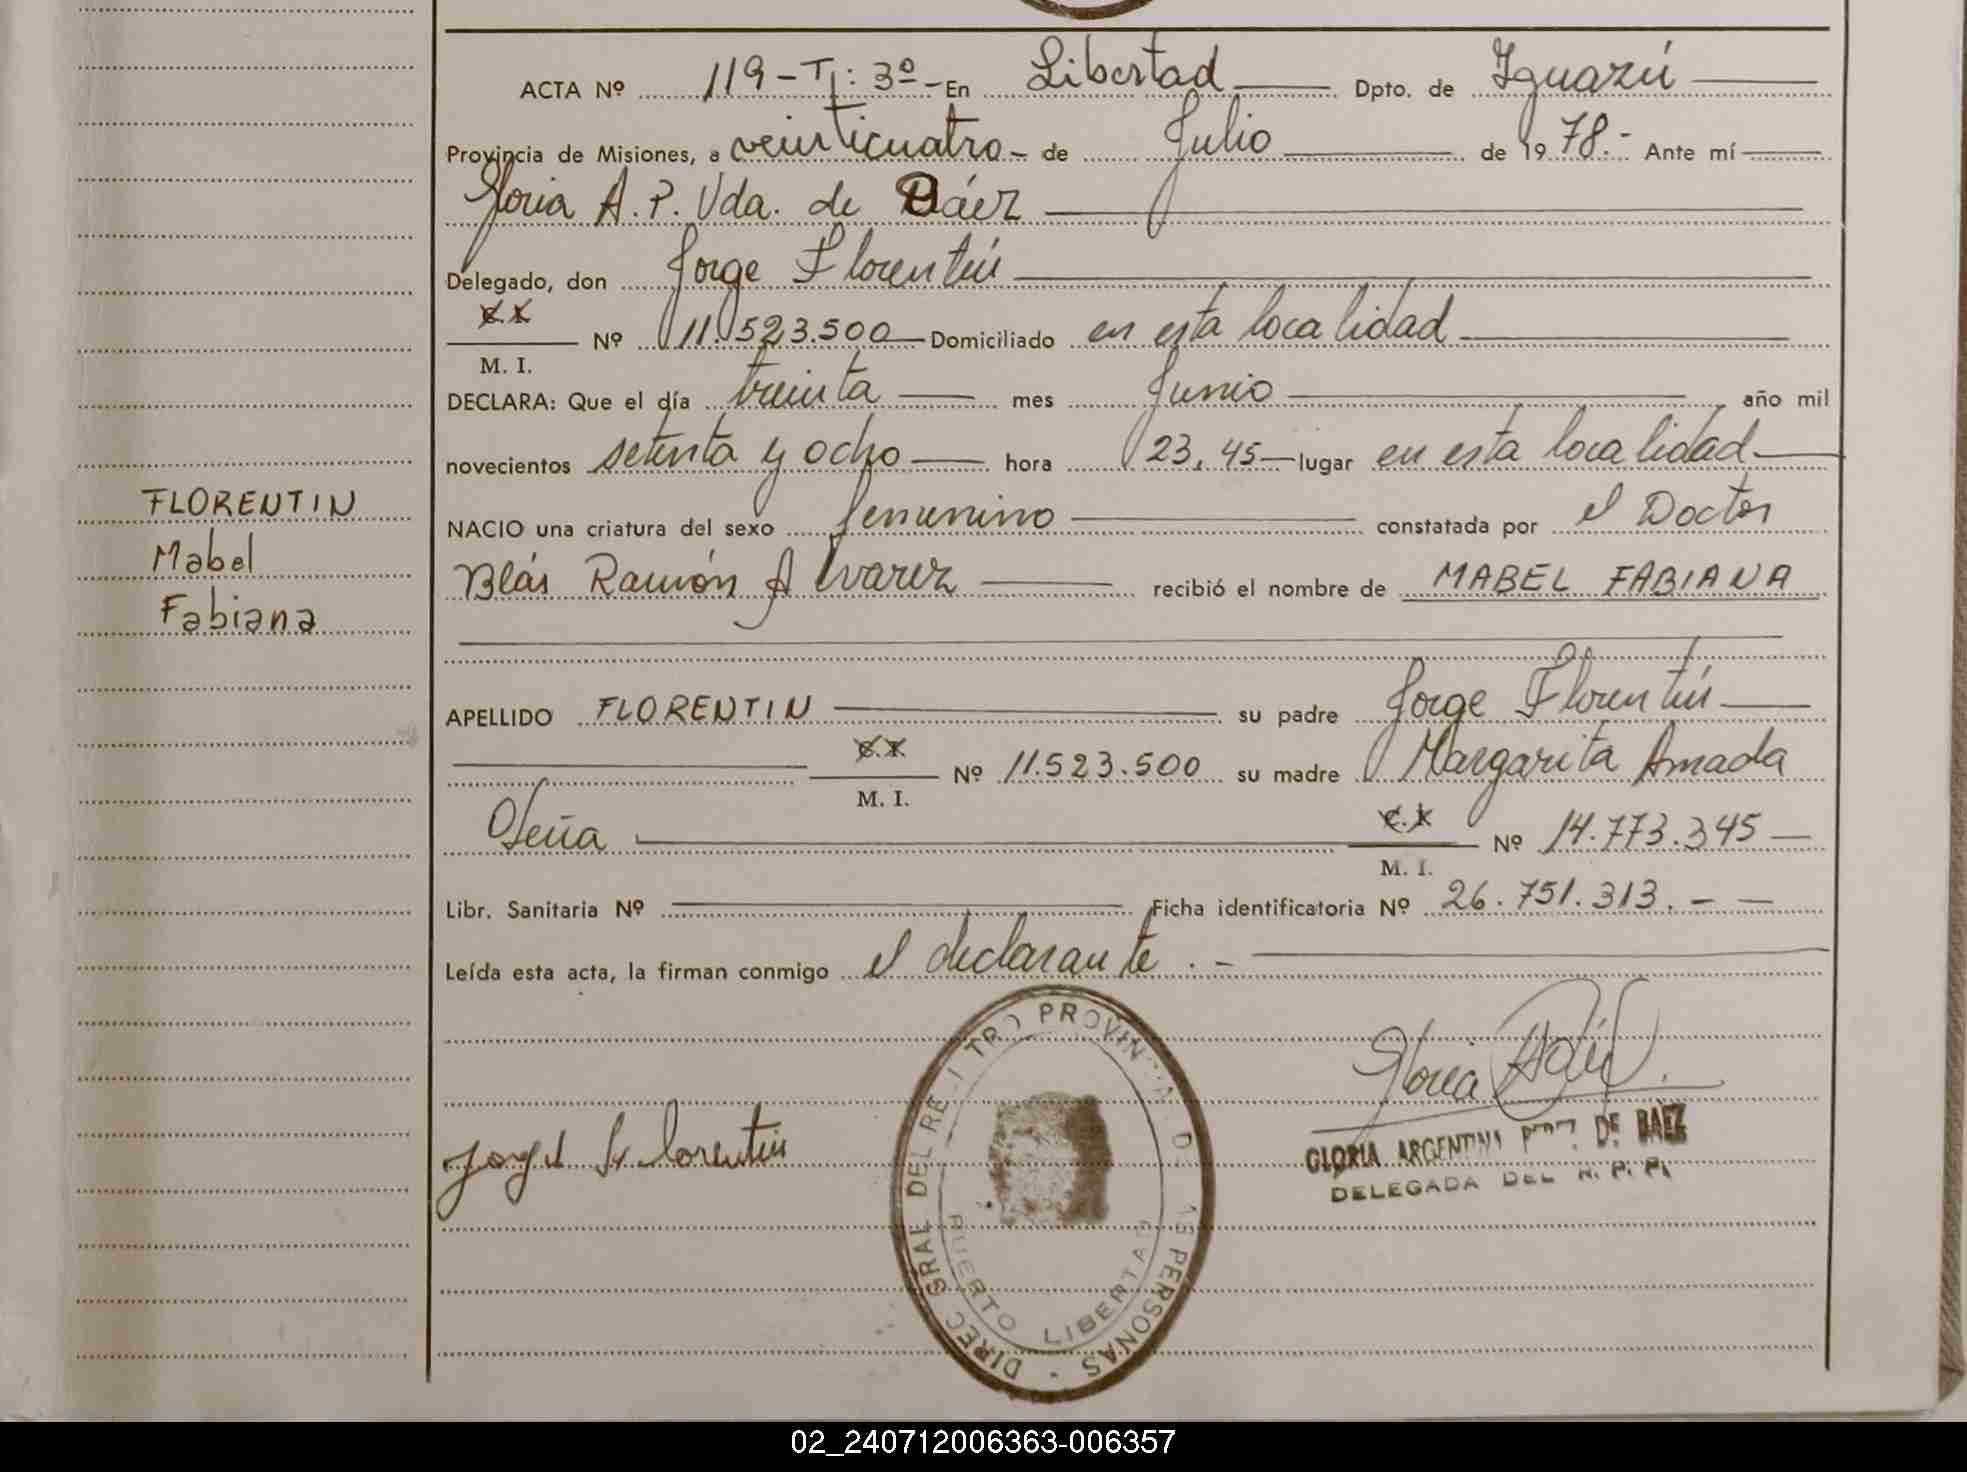 ACTA Nº 119 - T: 3º - En Libertad Dpto. de Iguazú
Provincia de Misiones, a veinticuatro - de Julio de 1978.- Ante mí
Gloria A. P. Vda. de Báez
Delegado, don Jorge Florentín
C. I.
M. I. Nº 11.523.500 Domiciliado en esta localidad
DECLARA: Que el día treinta mes Junio año mil
novecientos setenta y ocho hora 23,45 lugar en esta localidad
FLORENTIN
Mabel
Fabiana
NACIO una criatura del sexo femenino constatada por el Doctor
Blás Ramón Alvarez recibió el nombre de MABEL FABIANA
APELLIDO FLORENTIN su padre Jorge Florentín
C. I.
M. I. Nº 11.523.500 su madre Margarita Amada
C. I.
M. I. Nº 14.773.345
Libr. Sanitaria Nº Ficha identificatoria Nº 26.751.313.-
Leída esta acta, la firman conmigo el declarante.-
DIREC GRAL DEL REGISTRO PROVINCIAL DE LAS PERSONAS
PUERTO LIBERTAD
Jorge Florentin
Gloria
GLORIA ARGENTINA DE BAEZ
DELEGADA DEL R. P. P.
02_240712006363-006357